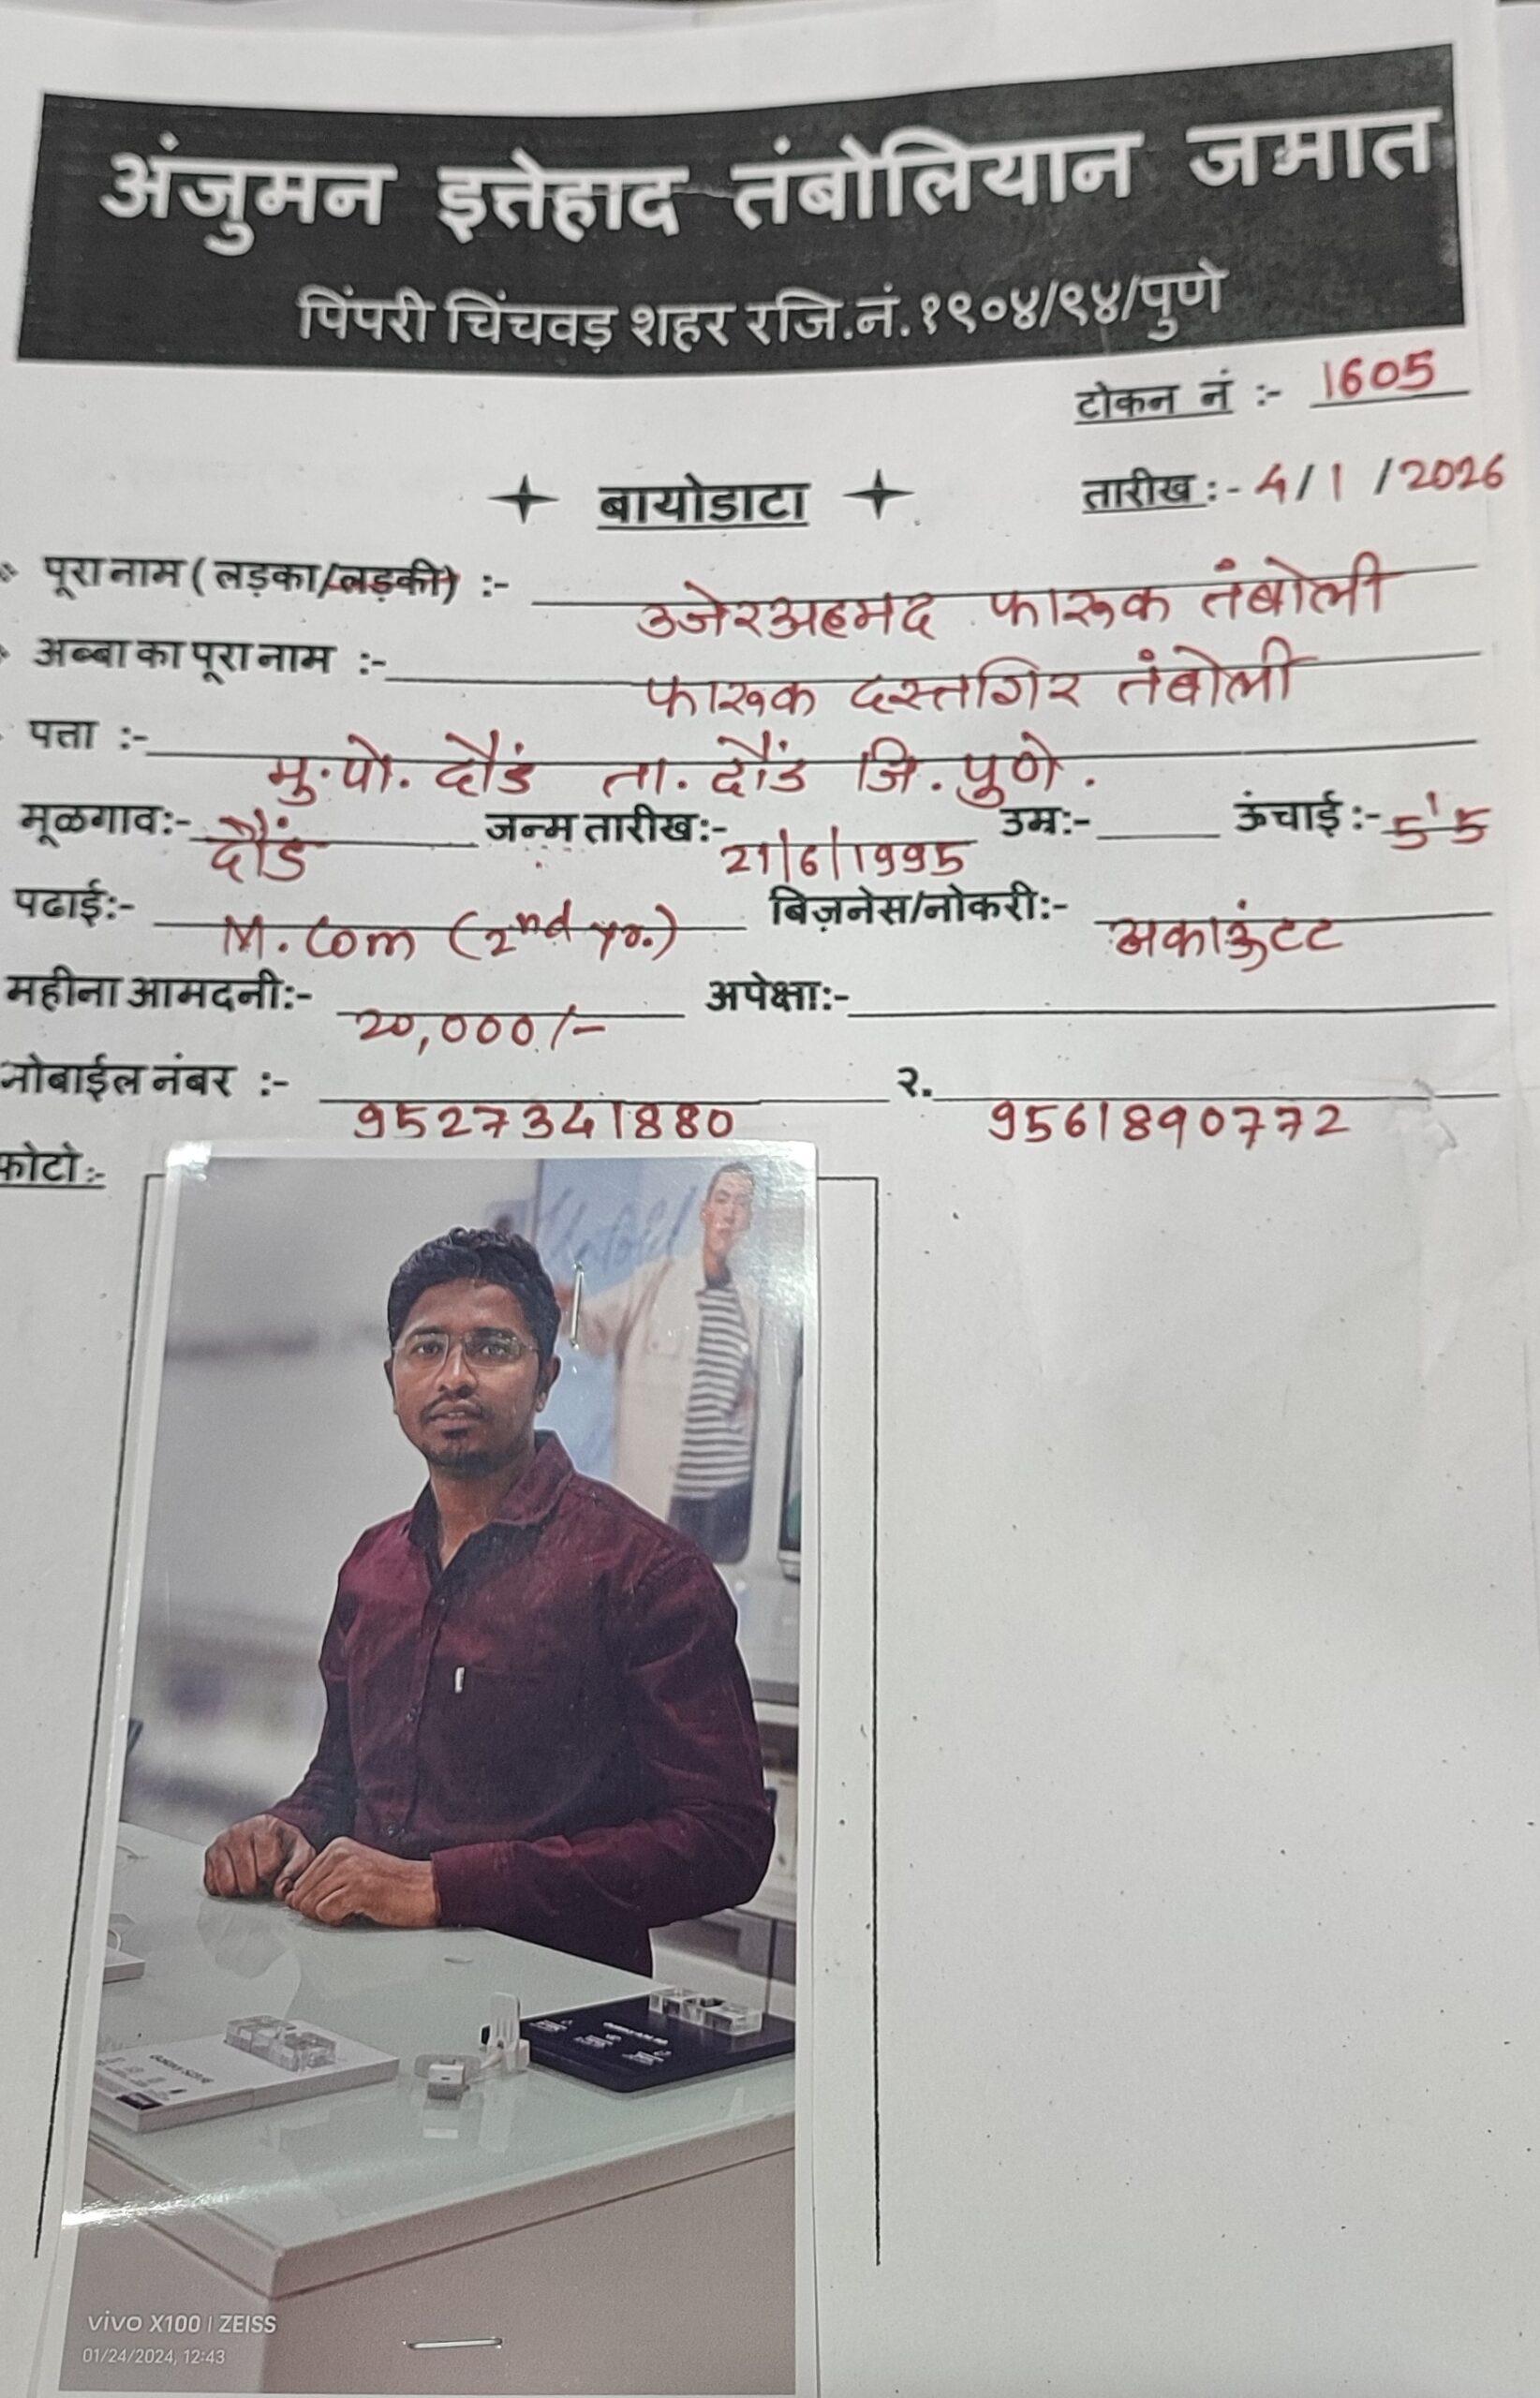 अंजुमन इत्तेहाद तंबोलियान जमात
पिंपरी चिंचवड़ शहर रजि.नं.१९०४/९४/पुणे
टोकन नं :- 1605
बायोडाटा
तारीख :- 4/1/2026
पूरा नाम (लड़का/लड़की) :- उजेरअहमद फारूक तंबोली
अब्बा का पूरा नाम :- फारूक दस्तगिर तंबोली
पत्ता :- मु.पो. दौंड ता. दौंड जि. पुणे.
मूळगाव:- दौंड जन्म तारीख:- 21/6/1995 उम्र:- ऊंचाई :- 5'5
पढाई:- M.Com (2nd yr.) बिज़नेस/नोकरी:- अकाऊंटट
महीना आमदनी:- 20,000/- अपेक्षा:-
मोबाईल नंबर :- 9527341880 २. 9561890772
फोटो :-
Unfold
vivo X100 | ZEISS
01/24/2024, 12:43